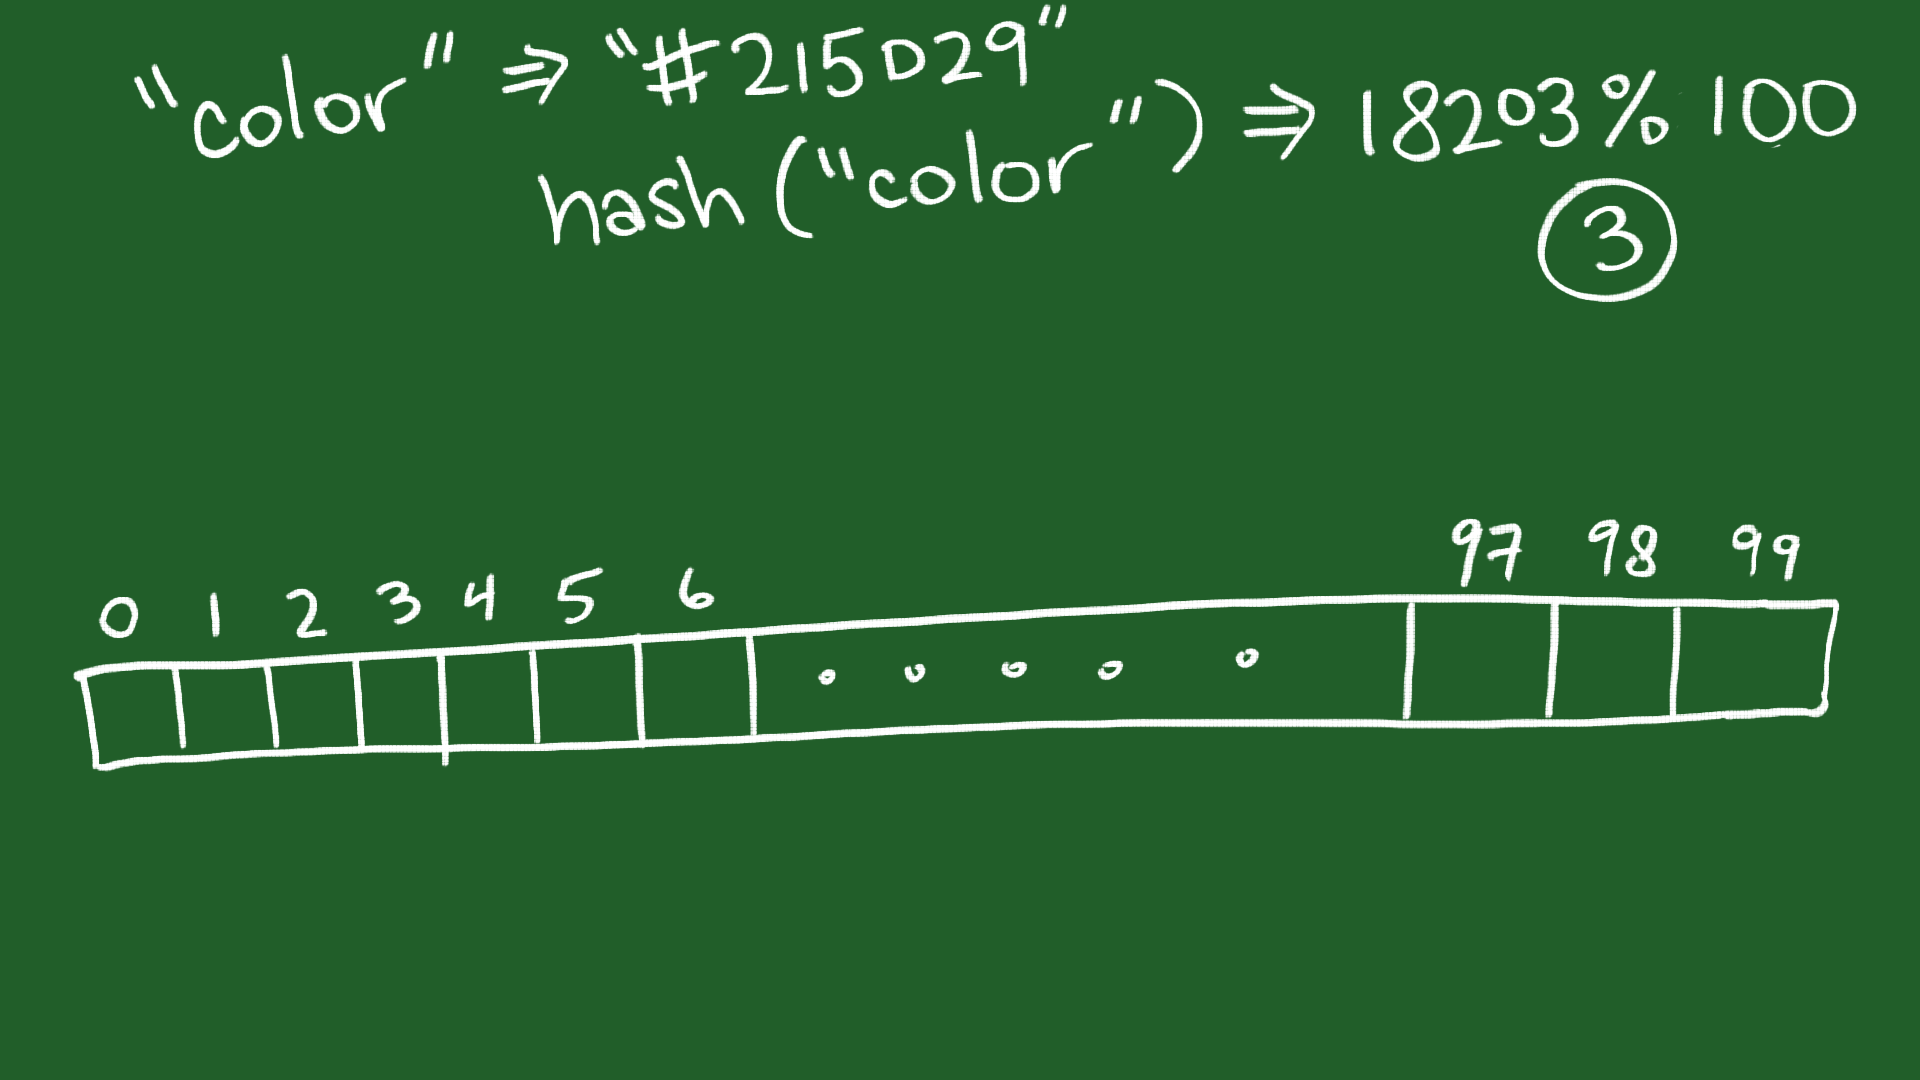 "color" ⇒ "#215D29"
hash("color") ⇒ 18203 % 100
3
0 1 2 3 4 5 6 97 98 99